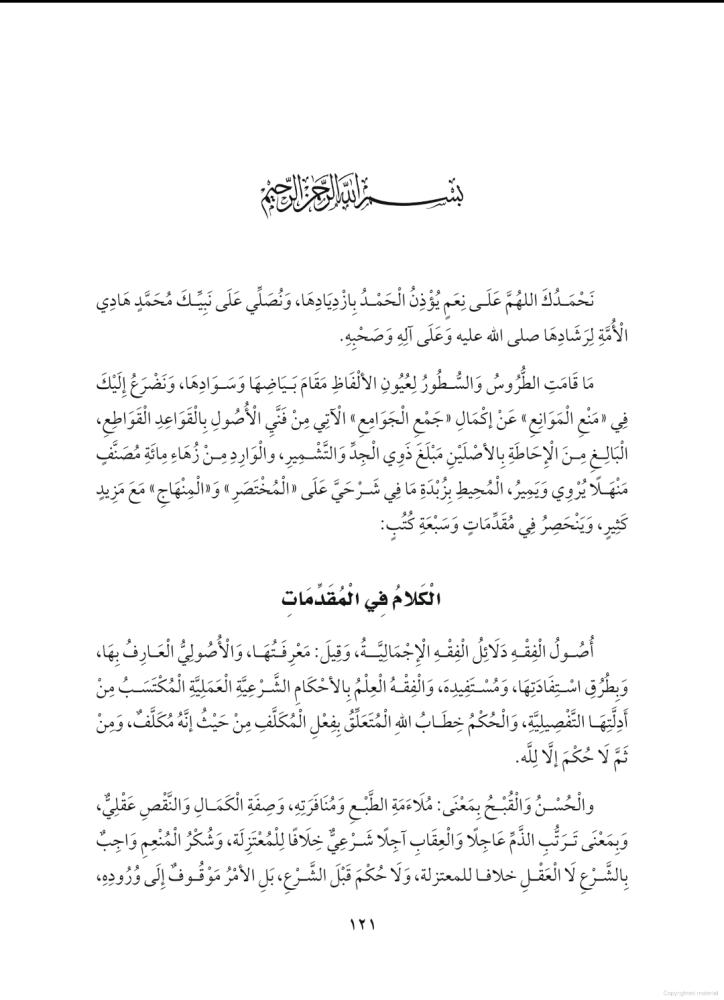 بِسْمِ اللَّهِ الرَّحْمَٰنِ الرَّحِيمِ
نَحْمَدُكَ اللهُمَّ عَلَى نِعَمٍ يُؤْذِنُ الْحَمْدُ بِازْدِيَادِهَا، وَنُصَلِّي عَلَى نَبِيِّكَ مُحَمَّدٍ هَادِي
الْأُمَّةِ لِرَشَادِهَا صلى الله عليه وَعَلَى آلِهِ وَصَحْبِهِ.
مَا قَامَتِ الطُّرُوسُ وَالسُّطُورُ لِعُيُونِ الألْفَاظِ مَقَامَ بَيَاضِهَا وَسَوَادِهَا، وَنَضْرَعُ إِلَيْكَ
فِي «مَنْعِ الْمَوَانِعِ» عَنْ إِكْمَالِ «جَمْعِ الْجَوَامِعِ» الْآتِي مِنْ فَنَّيِ الْأُصُولِ بِالْقَوَاعِدِ الْقَوَاطِعِ،
الْبَالِغِ مِنَ الْإِحَاطَةِ بِالأصْلَيْنِ مَبْلَغَ ذَوِي الْجِدِّ وَالتَّشْمِيرِ، والْوَارِدِ مِنْ زُهَاءِ مِائَةِ مُصَنَّفٍ
مَنْهَلًا يُرْوِي وَيَمِيرُ، الْمُحِيطِ بِزُبْدَةِ مَا فِي شَرْحَيَّ عَلَى «الْمُخْتَصَرِ» وَ«الْمِنْهَاجِ» مَعَ مَزِيدٍ
كَثِيرٍ، وَيَنْحَصِرُ فِي مُقَدِّمَاتٍ وَسَبْعَةِ كُتُبٍ:
الْكَلَامُ فِي الْمُقَدِّمَاتِ
أُصُولُ الْفِقْهِ دَلَائِلُ الْفِقْهِ الْإِجْمَالِيَّةُ، وَقِيلَ: مَعْرِفَتُهَا، وَالْأُصُولِيُّ الْعَارِفُ بِهَا،
وَبِطُرُقِ اسْتِفَادَتِهَا، وَمُسْتَفِيدِهَ، وَالْفِقْهُ الْعِلْمُ بِالأحْكَامِ الشَّرْعِيَّةِ الْعَمَلِيَّةِ الْمُكْتَسَبُ مِنْ
أَدِلَّتِهَا التَّفْصِيلِيَّةِ، وَالْحُكْمُ خِطَابُ اللهِ الْمُتَعَلِّقُ بِفِعْلِ الْمُكَلَّفِ مِنْ حَيْثُ إنَّهُ مُكَلَّفٌ، وَمِنْ
ثَمَّ لَا حُكْمَ إلَّا لِلَّهِ.
والْحُسْنُ وَالْقُبْحُ بِمَعْنَى: مُلَاءَمَةِ الطَّبْعِ وَمُنَافَرَتِهِ، وَصِفَةِ الْكَمَالِ وَالنَّقْصِ عَقْلِيٌّ،
وَبِمَعْنَى تَرَتُّبِ الذَّمِّ عَاجِلًا وَالْعِقَابِ آجِلًا شَرْعِيٌّ خِلَافًا لِلْمُعْتَزِلَة، وَشُكْرُ الْمُنْعِمِ وَاجِبٌ
بِالشَّرْعِ لَا الْعَقْلِ خلافا للمعتزلة، وَلَا حُكْمَ قَبْلَ الشَّرْعِ، بَلِ الأمْرُ مَوْقُوفٌ إِلَى وُرُودِهِ،
١٢١
Copyrighted material